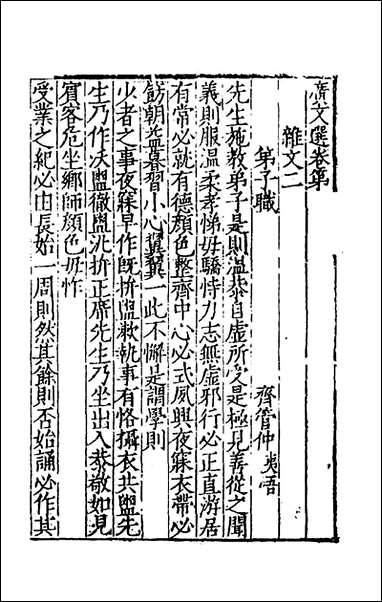 廣文選卷第
雜文二
弟子職 齊管仲夷吾
先生施教弟子是則溫恭自虛所受是極見善從之聞
義則服溫柔孝悌毋驕恃力志無虛邪行必正直游居
有常必就有德顏色整齊中心必式夙興夜寐衣帶必
飭朝益暮習小心翼翼一此不懈是謂學則
少者之事夜寐早作既拚盥漱執事有恪攝衣共盥先
生乃作沃盥徹盥汎拚正席先生乃坐出入恭敬如見
賓客危坐鄉師顏色毋怍
受業之紀必由長始一周則然其餘則否始誦必作其